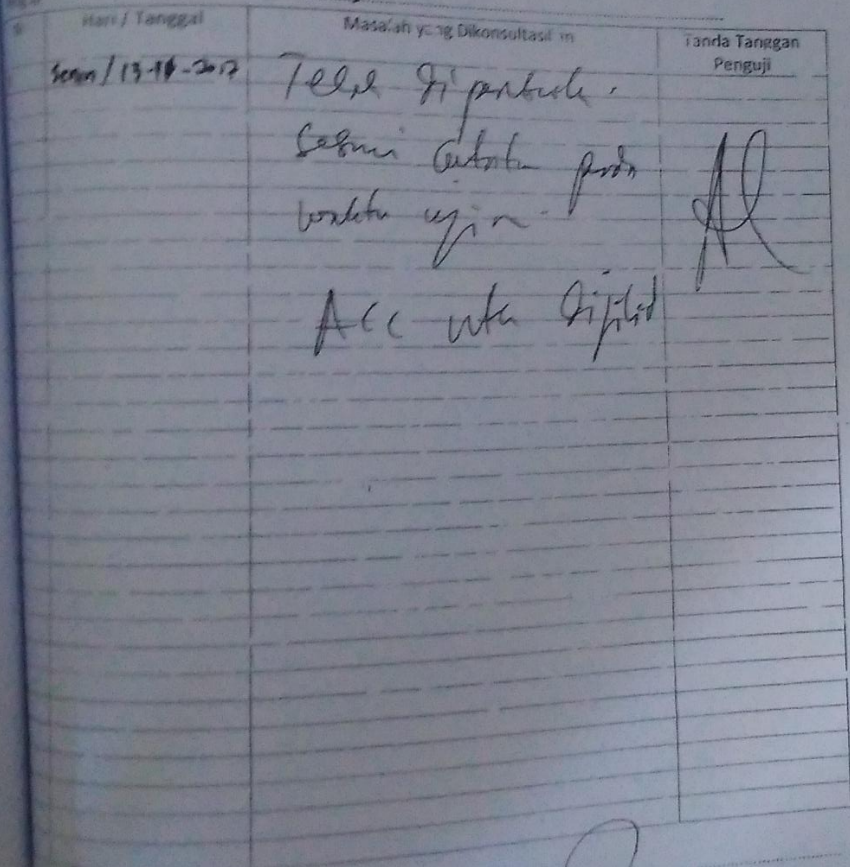 Hari / Tanggal
Masalah yang Dikonsultasikan
Tanda Tanggan
Penguji
Senin / 13-11-2017
Telah diperbaiki
Sesuai Catatan pada
waktu ujian
Acc utk dijilid